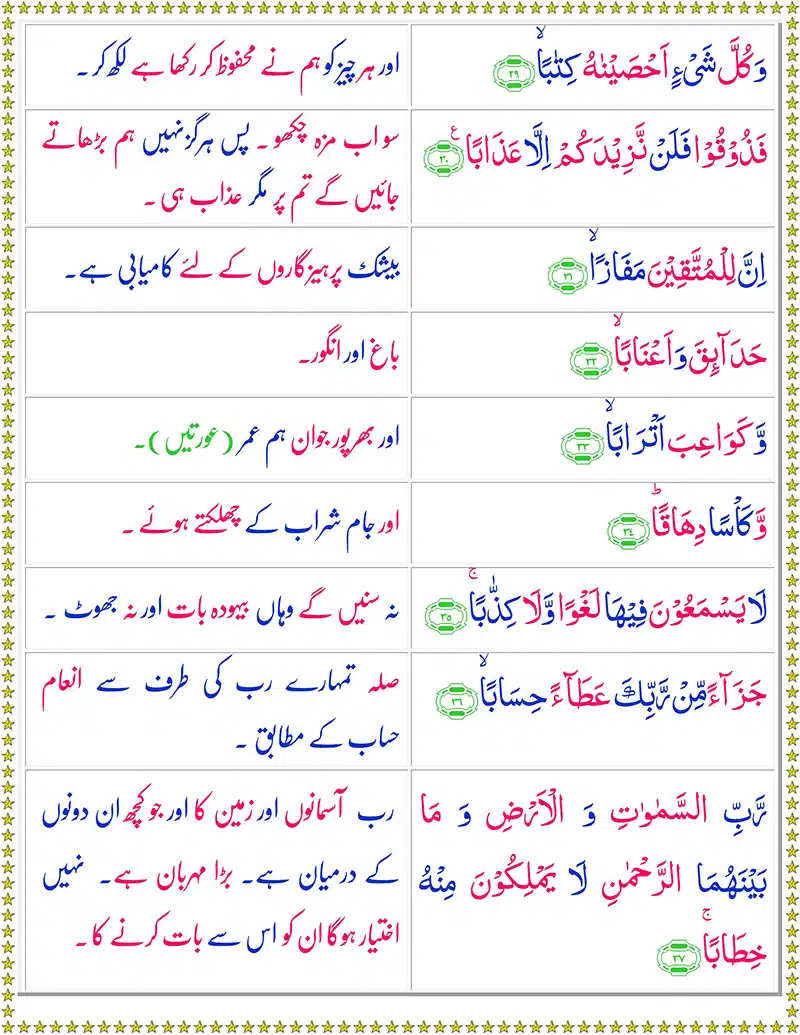 وَكُلَّ شَىْءٍ اَحْصَيْنٰهُ كِتٰبًا ۙ ﴿٢٩﴾
اور ہر چیز کو ہم نے محفوظ کر رکھا ہے لکھ کر ۔
فَذُوْقُوْا فَلَنْ نَّزِيْدَكُمْ اِلَّا عَذَابًا ۧ ﴿٣٠﴾
سو اب مزہ چکھو ۔ پس ہرگز نہیں ہم بڑھاتے
جائیں گے تم پر مگر عذاب ہی ۔
اِنَّ لِلْمُتَّقِيْنَ مَفَازًا ۙ ﴿٣١﴾
بیشک پرہیزگاروں کے لئے کامیابی ہے ۔
حَدَآئِقَ وَاَعْنَابًا ۙ ﴿٣٢﴾
باغ اور انگور۔
وَّكَوَاعِبَ اَتْرَابًا ۙ ﴿٣٣﴾
اور بھرپور جوان ہم عمر (عورتیں)۔
وَّكَاْسًا دِهَاقًا ؕ ﴿٣٤﴾
اور جام شراب کے چھلکتے ہوئے ۔
لَا يَسْمَعُوْنَ فِيْهَا لَغْوًا وَّلَا كِذّٰبًا ۚ ﴿٣٥﴾
نہ سنیں گے وہاں بیہودہ بات اور نہ جھوٹ ۔
جَزَآءً مِّنْ رَّبِّكَ عَطَآءً حِسَابًا ۙ ﴿٣٦﴾
صلہ تمہارے رب کی طرف سے انعام
حساب کے مطابق ۔
رَّبِّ السَّمٰوٰتِ وَ الْاَرْضِ وَ مَا
بَيْنَهُمَا الرَّحْمٰنِ لَا يَمْلِكُوْنَ مِنْهُ
خِطَابًا ۚ ﴿٣٧﴾
رب آسمانوں اور زمین کا اور جو کچھ ان دونوں
کے درمیان ہے۔ بڑا مہربان ہے۔ نہیں
اختیار ہوگا ان کو اس سے بات کرنے کا ۔